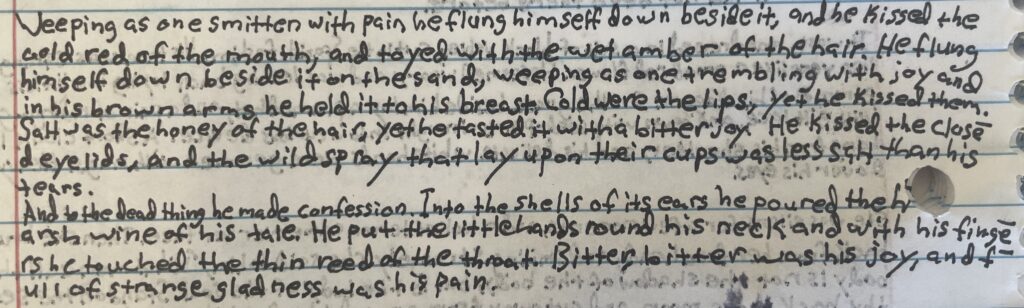 Weeping as one smitten with pain he flung himself down beside it, and he kissed the
cold red of the mouth, and toyed with the wet amber of the hair. He flung
himself down beside it on the sand, weeping as one trembling with joy and
in his brown arms he held it to his breast. Cold were the lips, yet he kissed them.
Salt was the honey of the hair, yet he tasted it with a bitter joy. He kissed the close-
d eyelids, and the wild spray that lay upon their cups was less salt than his
tears.
And to the dead thing he made confession. Into the shells of its ears he poured the h
arsh wine of his tale. He put the little hands round his neck and with his finge-
rs he touched the thin reed of the throat. Bitter, bitter was his joy, and f-
ull of strange gladness was his pain.